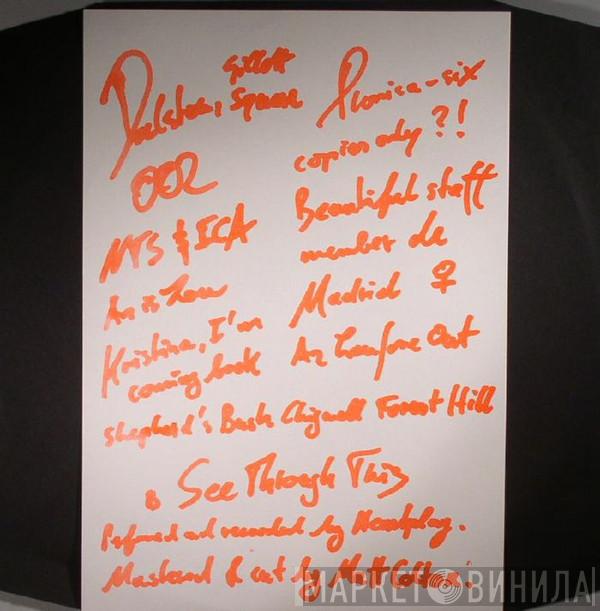 Gillott
Dalston, Square
002
NTS & ICA
An is how
Kristina, I'm
coming back
Promise - six
copies only ?!
Beautiful staff
member de
Madrid ♀
An Out
Shepherd's Bush Chigwell Forest Hill
& See Through This
Performed and recorded by
Mastered & cut by Matt Colton.
МАРКЕТ ВИНИЛА